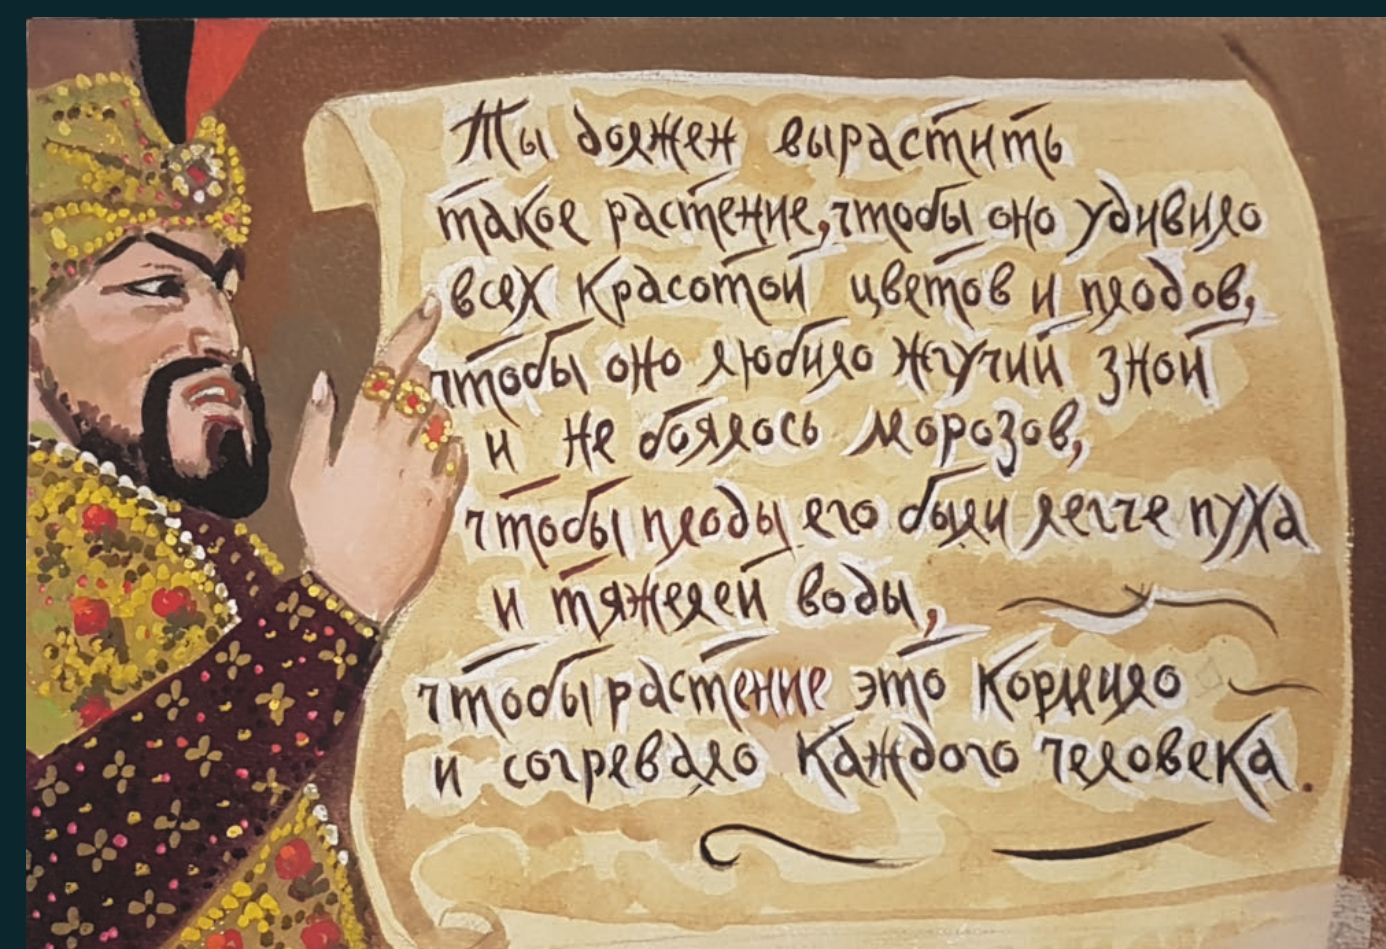 Ты должен вырастить
такое растение, чтобы оно удивило
всех красотой цветов и плодов,
чтобы оно любило жгучий зной
и не боялось морозов,
чтобы плоды его были легче пуха
и тяжелей воды,
чтобы растение это кормило
и согревало каждого человека.